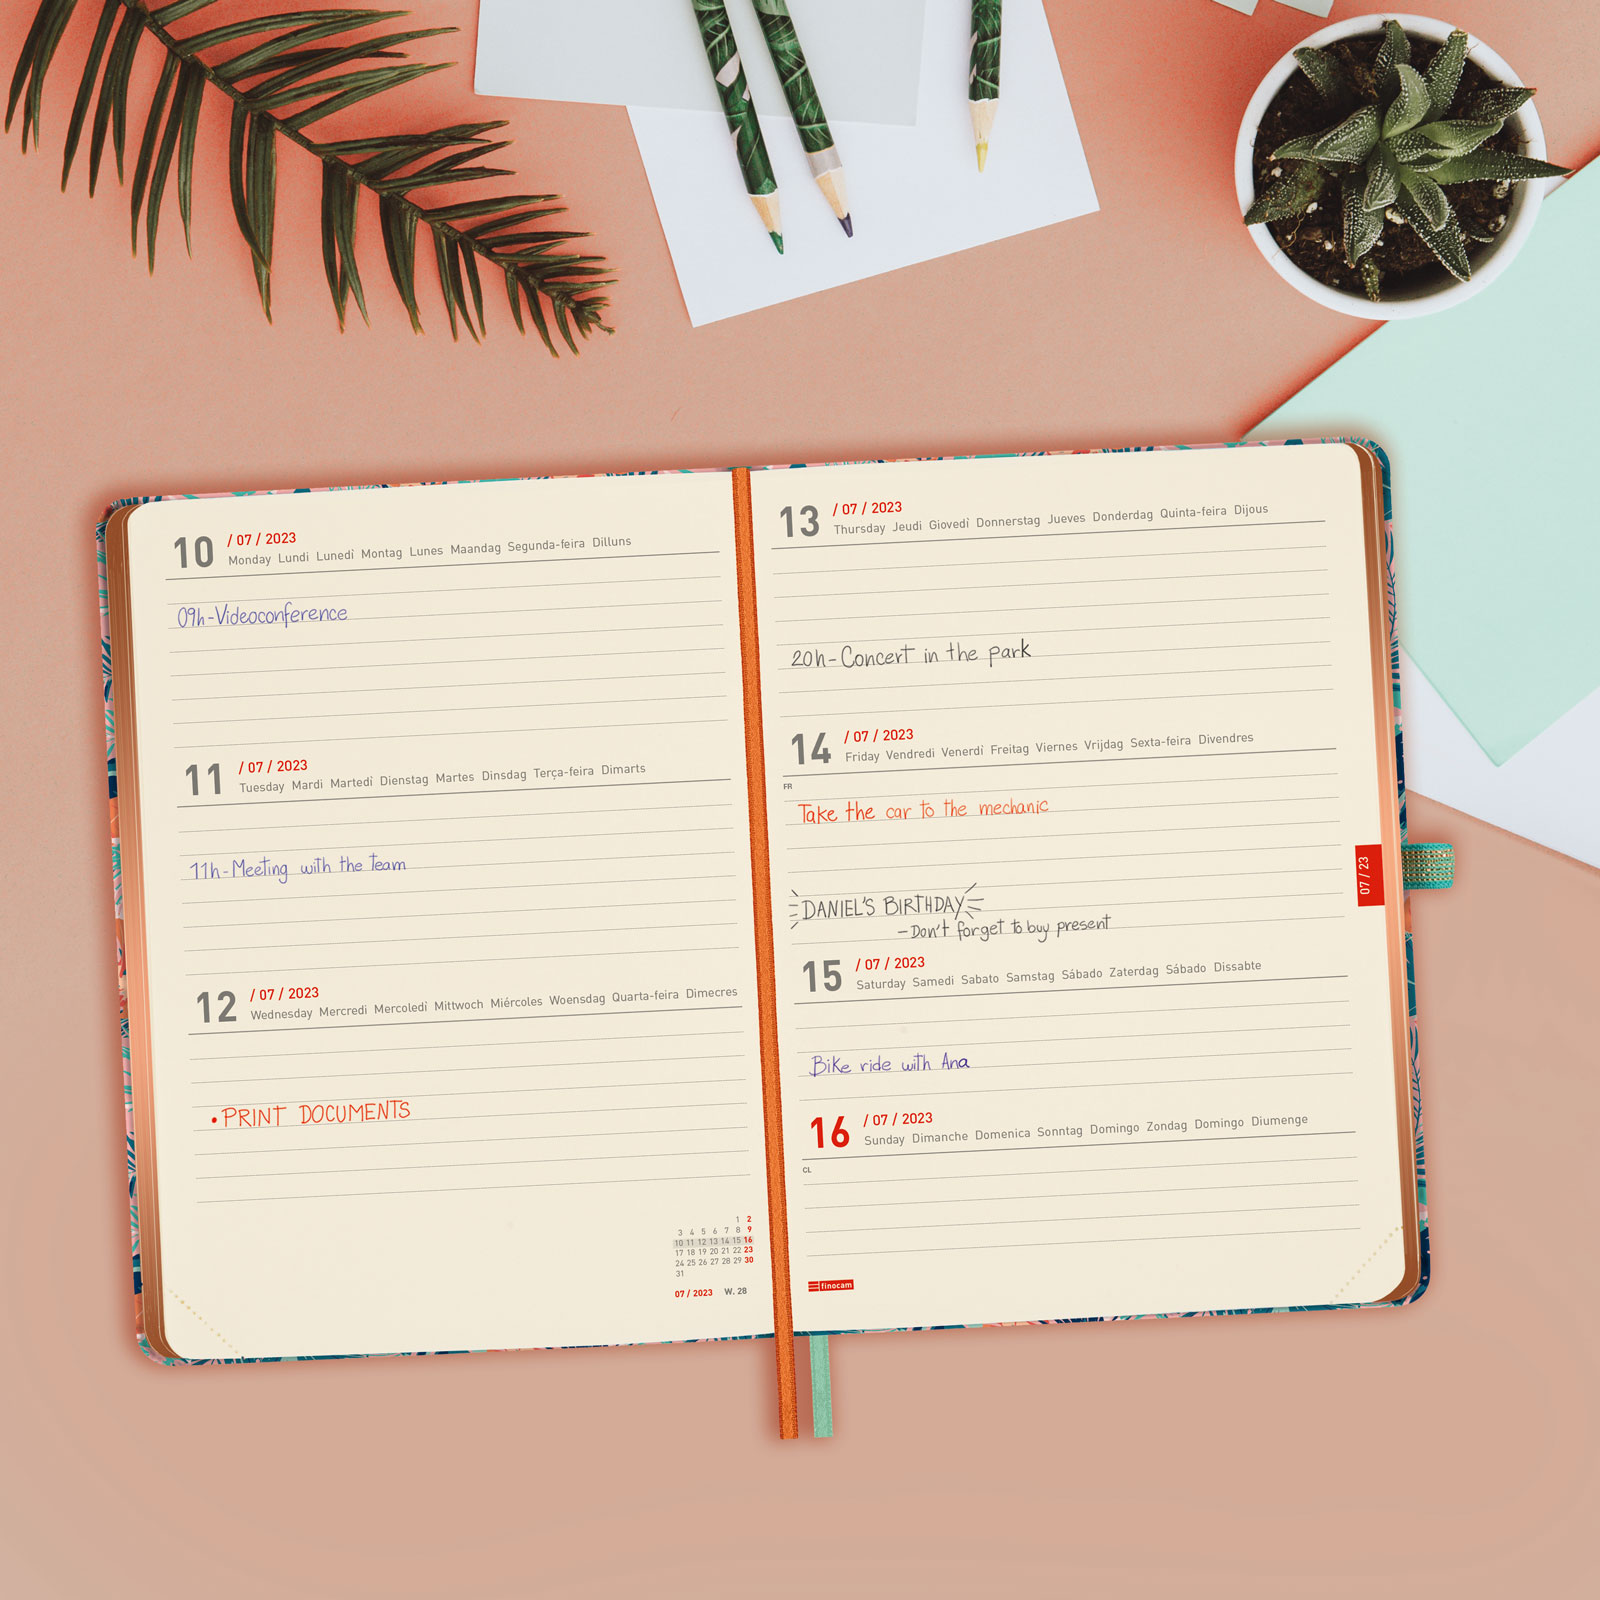 10 / 07 / 2023
Monday Lundi Lunedì Montag Lunes Maandag Segunda-feira Dilluns
09h-Videoconference
11 / 07 / 2023
Tuesday Mardi Martedì Dienstag Martes Dinsdag Terça-feira Dimarts
11h-Meeting with the team
12 / 07 / 2023
Wednesday Mercredi Mercoledì Mittwoch Miércoles Woensdag Quarta-feira Dimecres
• PRINT DOCUMENTS
1 2
3 4 5 6 7 8 9
10 11 12 13 14 15 16
17 18 19 20 21 22 23
24 25 26 27 28 29 30
31
07 / 2023 W. 28
13 / 07 / 2023
Thursday Jeudi Giovedì Donnerstag Jueves Donderdag Quinta-feira Dijous
20h-Concert in the park
14 / 07 / 2023
Friday Vendredi Venerdì Freitag Viernes Vrijdag Sexta-feira Divendres
FR
Take the car to the mechanic
DANIEL'S BIRTHDAY
-Don't forget to buy present
15 / 07 / 2023
Saturday Samedi Sabato Samstag Sábado Zaterdag Sábado Dissabte
Bike ride with Ana
16 / 07 / 2023
Sunday Dimanche Domenica Sonntag Domingo Zondag Domingo Diumenge
CL
finocam
07 / 23